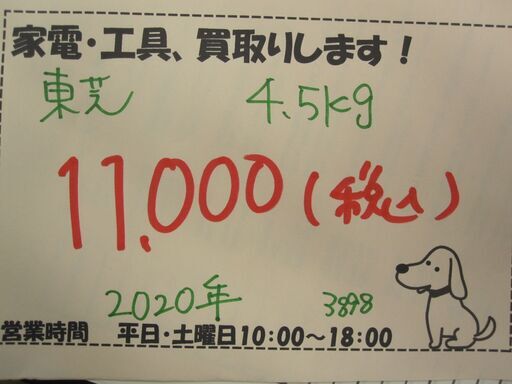 家電・工具、買取りします！
東芝 4.5kg
11,000(税込)
2020年 3898
営業時間 平日・土曜日10:00～18:00